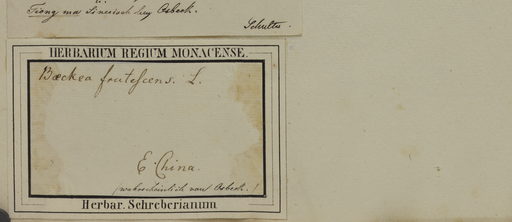 Tiong ma Sinesisch bey Osbeck.
Schultes.
HERBARIUM REGIUM MONACENSE.
Baeckea frutescens. L.
E China.
(wahrscheinlich von Osbeck.)
Herbar. Schreberianum